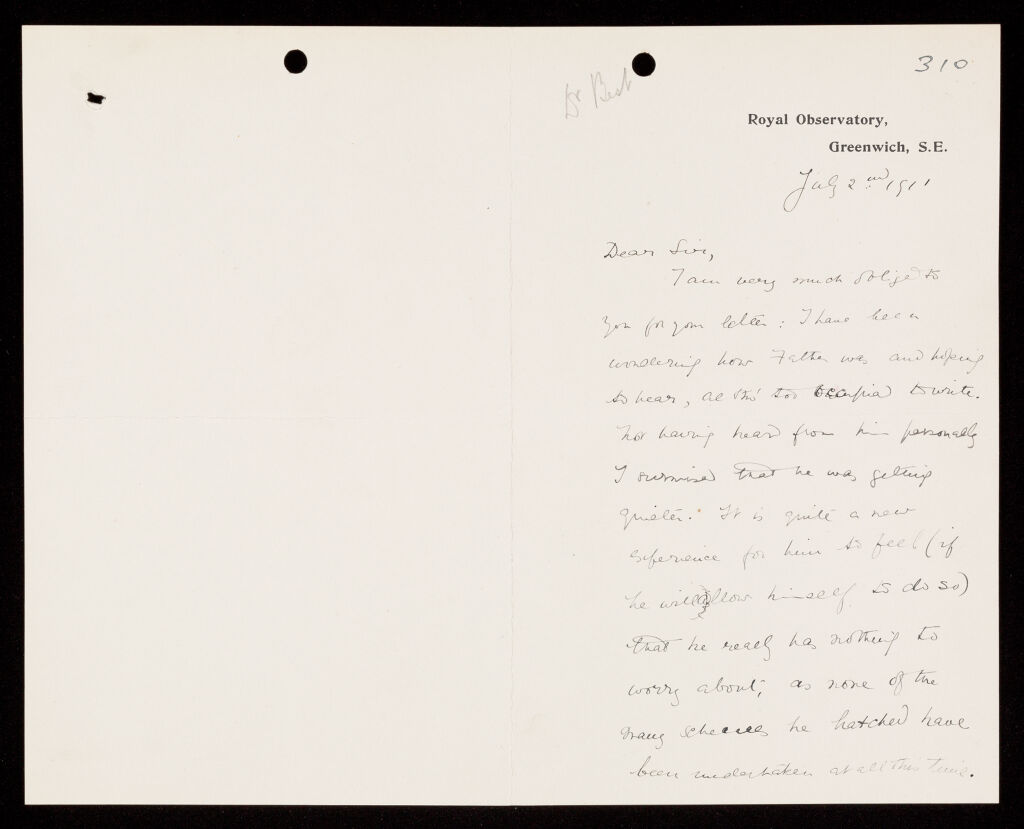 310
Dr Best
Royal Observatory,
Greenwich, S.E.
July 2nd 1911
Dear Sir,
I am very much obliged to
you for your letter: I have been
wondering how Father was and hoping
to hear, altho' too occupied to write.
Not having heard from him personally
I surmised that he was getting
quieter. It is quite a new
experience for him to feel (if
he will allow himself to do so)
that he really has nothing to
worry about; as none of the
many schemes he hatched have
been undertaken at all this time.